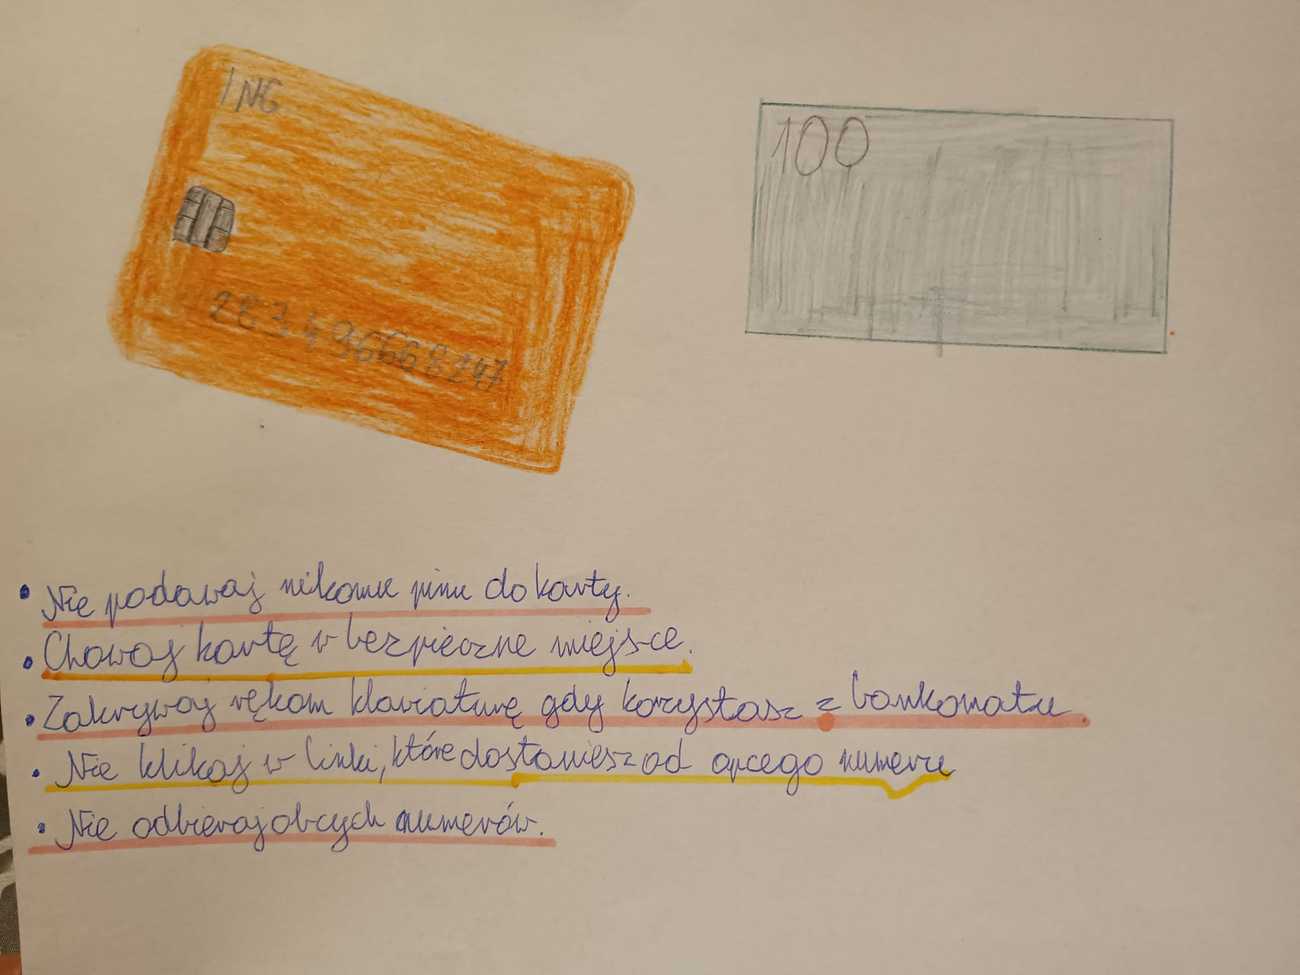 ING
100
283496668247
• Nie podawaj nikomu pinu do karty.
• Chowaj kartę w bezpieczne miejsce.
• Zakrywaj rękom klawiaturę gdy korzystasz z bankomatu.
• Nie klikaj w linki, które dostaniesz od opcego numeru
• Nie odbieraj obcych numerów.